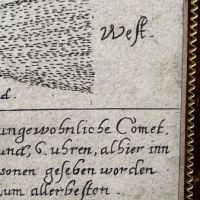 West.
d.
ungewohnliche Comet,
und, Cuhren, alhier inn
sonen gesehen worden
um allerbesten.